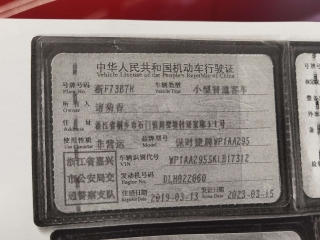 中华人民共和国机动车行驶证
Vehicle License of the People's Republic of China
号牌号码 浙F73B7H 车辆类型 小型普通客车
Plate No. Vehicle Type
所有人 诸菊香
Owner
住址 浙江省桐乡市石门镇
Address
使用性质 非营运 品牌型号 保时捷牌WP1AA295
Use Character Model
浙江省嘉兴
市公安局交
通警察支队
车辆识别代号 WP1AA2955KLB17312
VIN
发动机号码 DLH022060
Engine No.
注册日期 2019-03-13 发证日期 2023-03-15
Register Date Issue Date